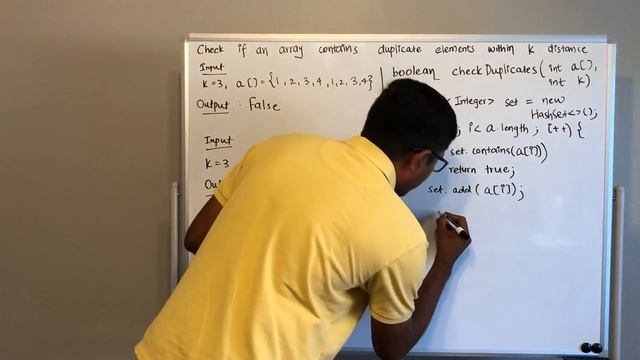 Check if an array contains duplicate elements within k distance
Input
K=3, a[] = {1, 2, 3, 4, 1, 2, 3, 4}
Output : False
Input
K = 3
boolean checkDuplicates( int a[],
int k)
Integer> set = new
HashSet<>();
; i < a.length ; i++) {
set.contains(a[i]))
return true;
set.add (a[i]);